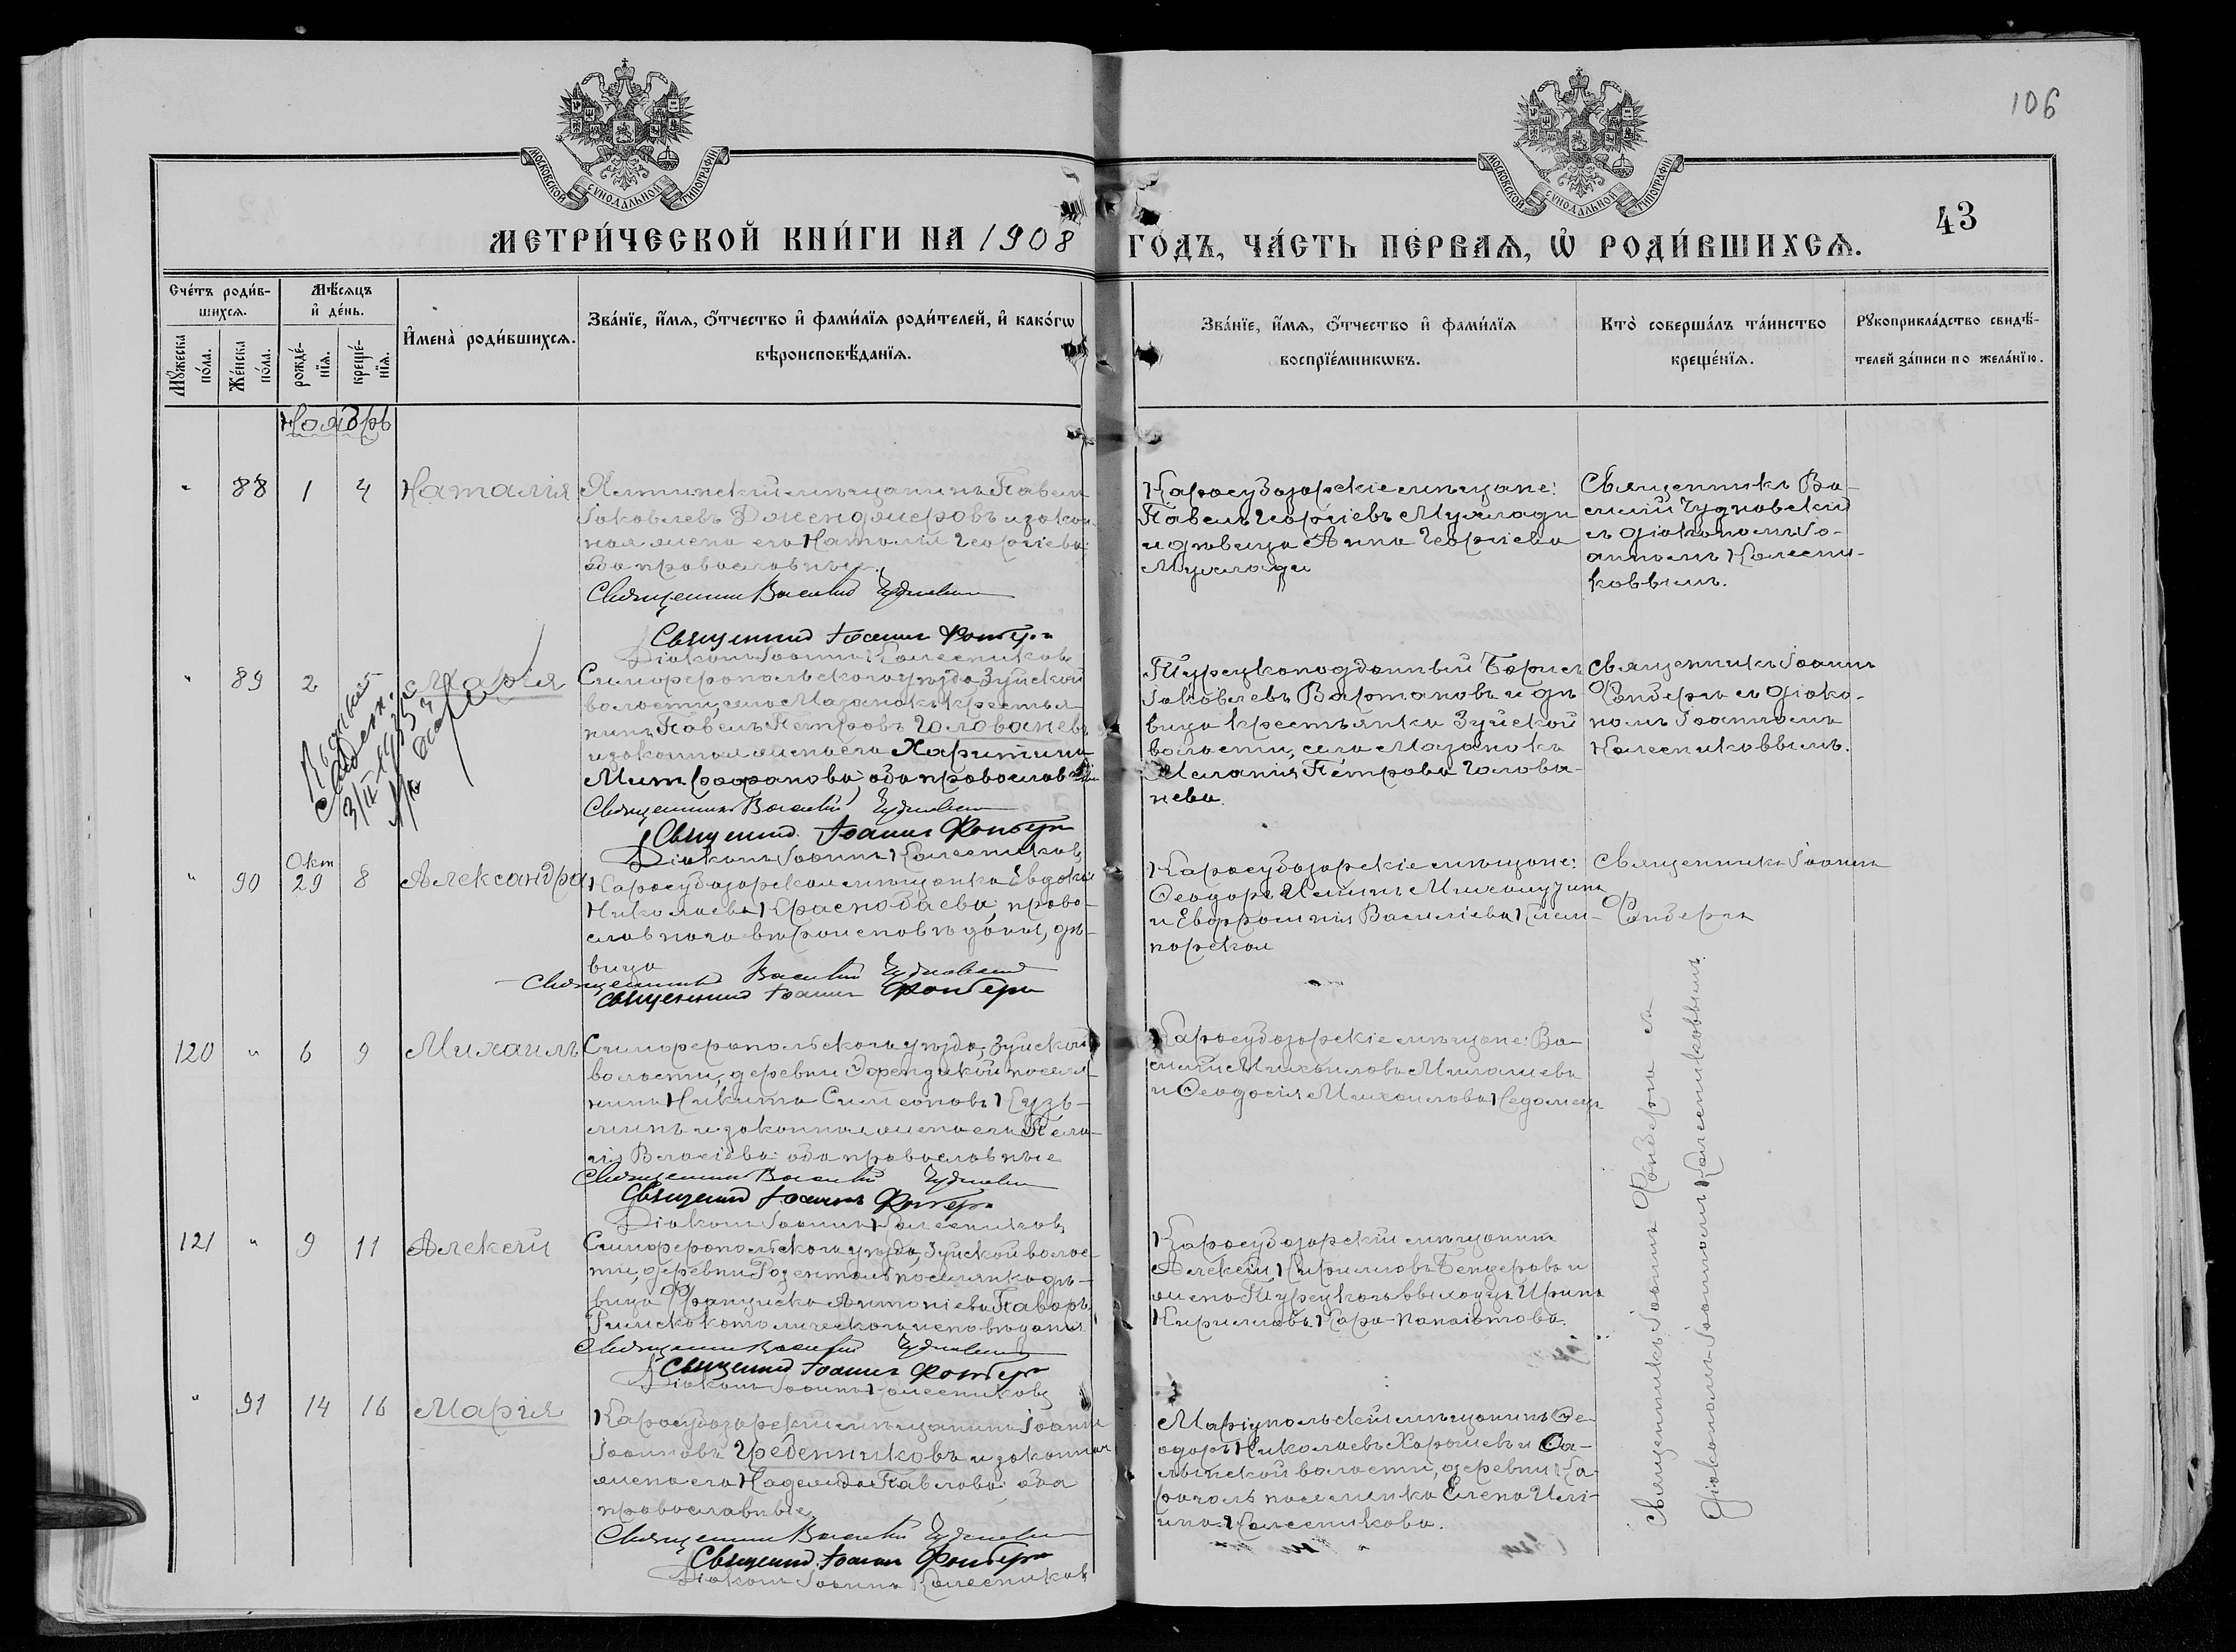 106
МОСКОВСКОЙ СѴНОДАЛЬНОЙ ТИПОГРАФІИ
МОСКОВСКОЙ СѴНОДАЛЬНОЙ ТИПОГРАФІИ
43
МЕТРИ́ЧЕСКОЙ КНИ́ГИ НА 1908 ГО́ДЪ, ЧА́СТЬ ПЕ́РВАЯ, Ѡ РОДИ́ВШИХСѦ.
Сче́тъ роди́в-
шихсѧ.
Мꙋ́жеска по́ла.
Же́нска по́ла.
Мѣ́сѧцъ
и҆ де́нь.
рожде́-
нїѧ.
креще́-
нїѧ.
И҆мена̀ роди́вшихсѧ.
Зва́нїе, и҆́мѧ, ѻ҆́тчество и҆ фами́лїѧ роди́телей, и҆ како́гѡ
вѣроисповѣ́данїѧ.
Зва́нїе, и҆́мѧ, ѻ҆́тчество и҆ фами́лїѧ
воспрїе́мникѡвъ.
Кто̀ соверша́лъ та́инство
креще́нїѧ.
Рꙋкоприкла́дство свидѣ́-
телей за́писи по жела́нїю.
Ноябрь
" 88 1 4 Наталія
Ялтинскій мѣщанинъ Павелъ
Іаковлевъ и закон-
ная жена его Наталія Георгіева;
оба православные.
Священникъ Василій Чудновскій
Священникъ Іоаннъ Фондерг
Діаконъ Іоаннъ Колесниковъ
Карасубазарскіе мѣщане:
Павелъ Георгіевъ
и дѣвица Анна Георгіева
Священникъ Ва-
силій Чудновскій
съ діакономъ Іо-
анномъ Колесни-
ковымъ.
" 89 2 Марія
3/II 1933
Симферопольскаго уѣзда, Зуйской
волости, села Мазанокъ крестья-
нинъ Павелъ Петровъ Голованевъ
и законная жена его Харитина
Митрофанова; оба православные
Священникъ Василій Чудновскій
Священникъ Іоаннъ Фондерг
Діаконъ Іоаннъ Колесниковъ
Турецкоподданный Борисъ
Іаковлевъ Вартановъ и дѣ-
вица крестьянка Зуйской
волости, села Мазанокъ
Меланія Петрова Голова-
нева.
Священникъ Іоаннъ
съ діако-
номъ Іоанномъ
Колесниковымъ.
" 90 Окт 29 8 Александра
Карасубазарская мѣщанка Евдокія
Николаева Краснобаева, право-
славнаго вѣроисповѣданія, дѣ-
вица
Священникъ Василій Чудновскій
Священникъ Іоаннъ
Карасубазарскіе мѣщане:
Ѳеодоръ Ильинъ
и Евфросинія Василіева
Священникъ Іоаннъ
120 " 6 9 Михаилъ
Симферопольскаго уѣзда, Зуйской
волости, деревни поселя-
нинъ Никита Симеоновъ Кузь-
минъ и законная жена его Пела-
гія Власіева: оба православные
Священникъ Василій Чудновскій
Священникъ Іоаннъ
Діаконъ Іоаннъ Колесниковъ
Карасубазарскіе мѣщане: Ва-
силій Михаиловъ
и Ѳеодосія Михаилова
121 " 9 11 Алексій
Симферопольскаго уѣзда, Зуйской волос-
ти, деревни Розенталь поселянка дѣ-
вица Франциска Антоніева
Римскокатолическаго исповѣданія
Священникъ Василій Чудновскій
Священникъ Іоаннъ
Діаконъ Іоаннъ Колесниковъ
Карасубазарскій мѣщанинъ
Алексій Кирилловъ Бендеровъ и
жена Ирина
Кириллова Кара-Панаіотова.
Священникъ Іоаннъ съ
діакономъ Іоанномъ Колесниковымъ.
" 91 14 16 Марія
Карасубазарскій мѣщанинъ Іоаннъ
Іоанновъ Гребенниковъ и законная
жена его Надежда Павлова: оба
православные
Священникъ Василій Чудновскій
Священникъ Іоаннъ
Діаконъ Іоаннъ Колесниковъ
Маріупольскій мѣщанинъ Ѳе-
одоръ Николаевъ и
волости, деревни
поселянка Елена
Колесникова.